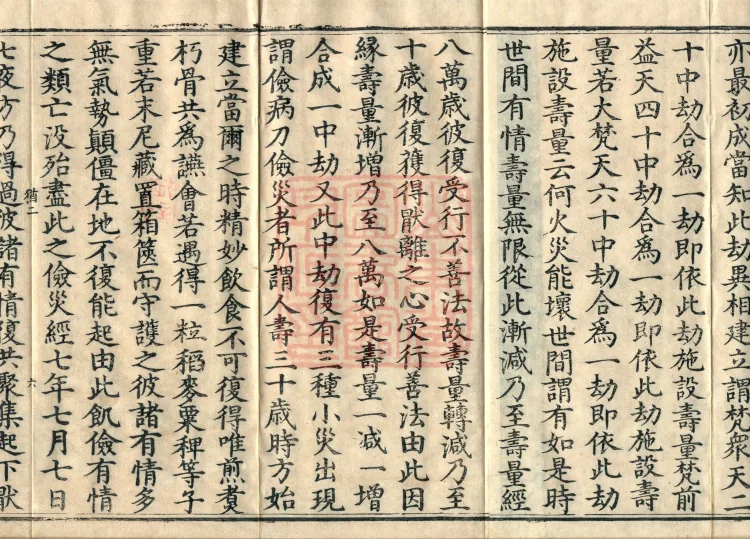 亦最初成當知此劫異相建立謂梵衆天二
十中劫合爲一劫即依此劫施設壽量梵前
益天四十中劫合爲一劫即依此劫施設壽
量若大梵天六十中劫合爲一劫即依此劫
施設壽量云何火災能壞世間謂有如是時
世間有情壽量無限從此漸減乃至壽量經
八萬歲彼復受行不善法故壽量轉減乃至
十歲彼復獲得厭離之心受行善法由此因
緣壽量漸增乃至八萬如是壽量一減一增
合成一中劫又此中劫復有三種小災出現
謂儉病刀儉災者所謂人壽三十歲時方始
建立當爾之時精妙飲食不可復得唯煎煑
朽骨共爲讌會若遇得一粒稻麥粟稗等子
重若末尼藏置箱篋而守護之彼諸有情多
無氣勢顚僵在地不復能起由此飢儉有情
之類亡没殆盡此之儉災經七年七月七日
猶二
六
七夜方乃得過彼諸有情復共聚集起下厭